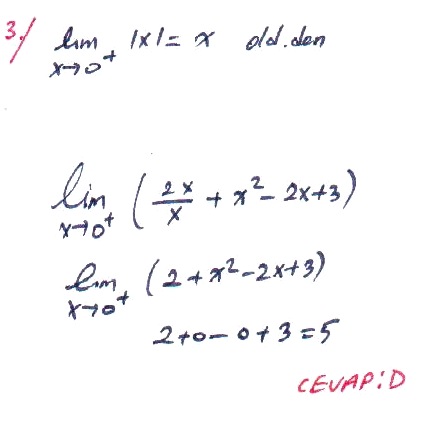 3./ lim x→0⁺ |x| = x old.den
lim x→0⁺ (2x/x + x² - 2x+3)
lim x→0⁺ (2 + x² - 2x+3)
2+0-0+3=5
CEVAP:D